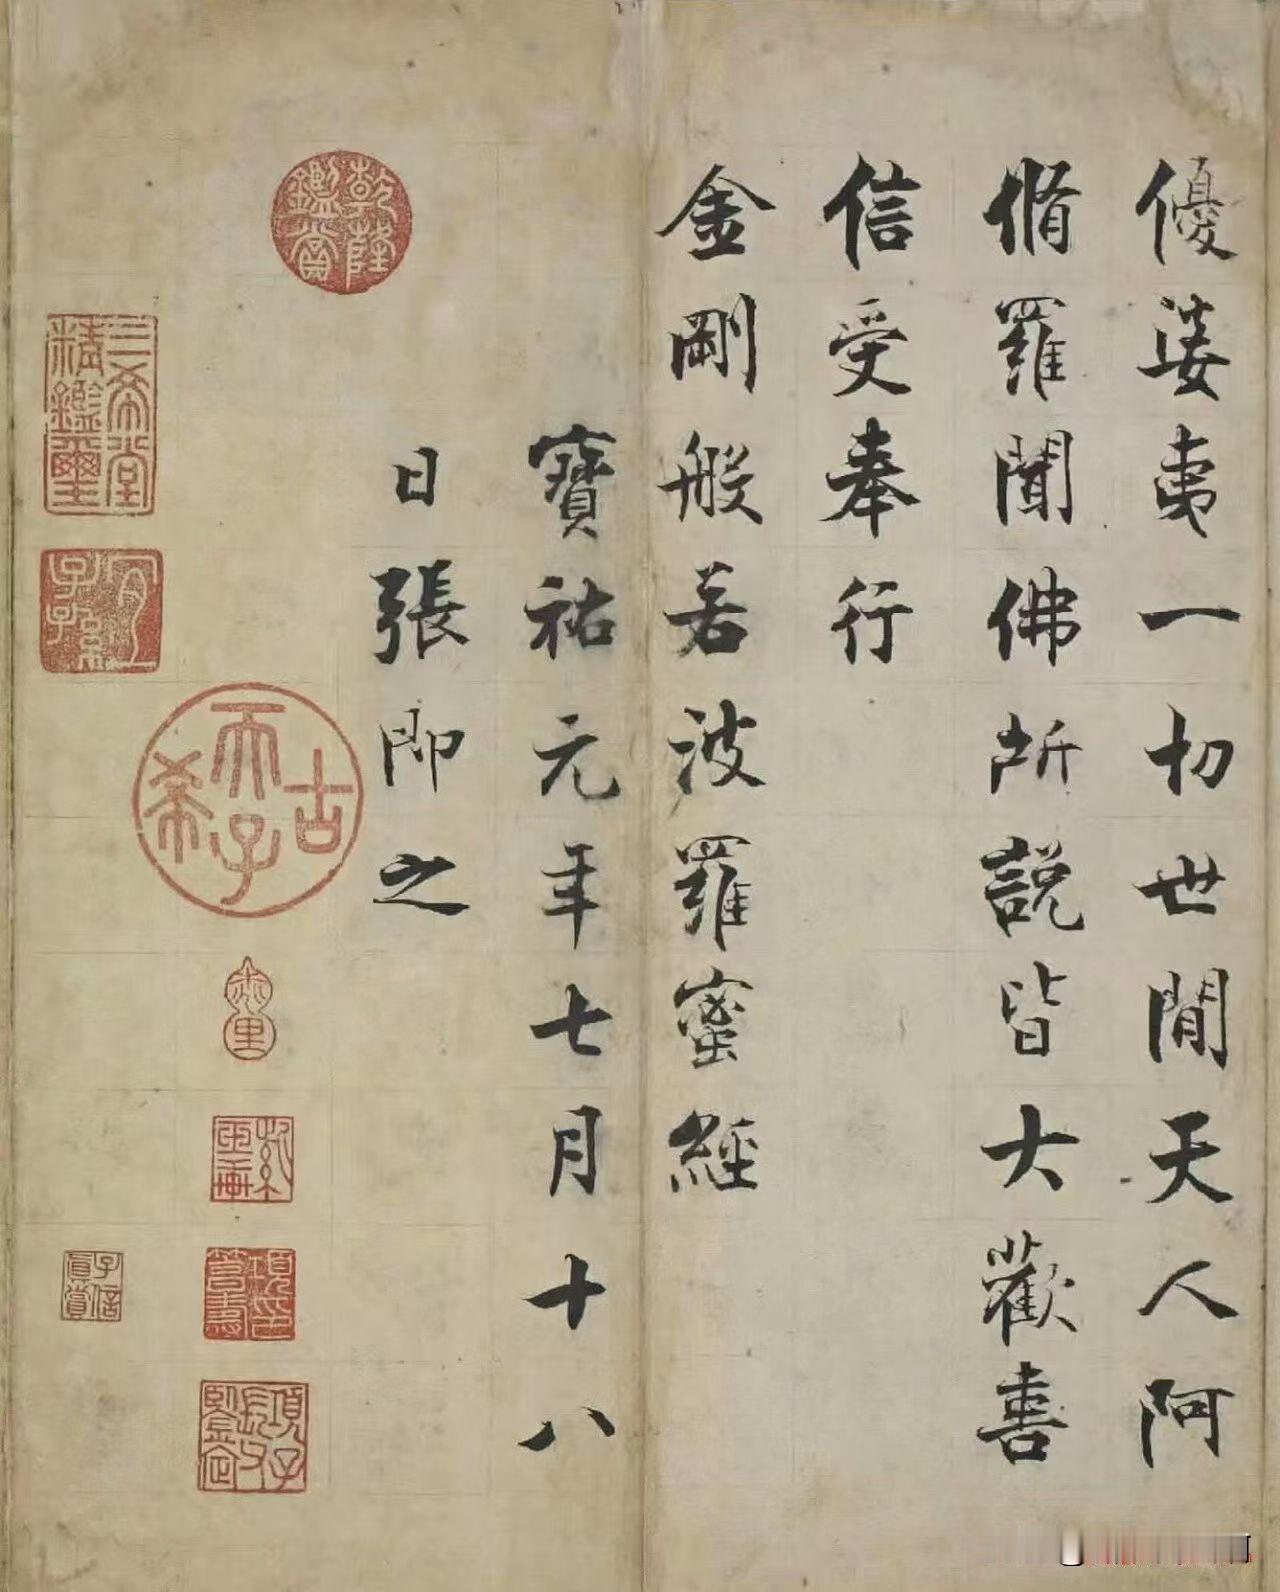 優婆夷一切世間天人阿
脩羅聞佛所說皆大歡喜
信受奉行
金剛般若波羅蜜經
寶祐元年七月十八
日張即之
乾隆鑑賞
三希堂精鑑璽
宜子孫
古希天子
項子長父鑒定
子信真賞